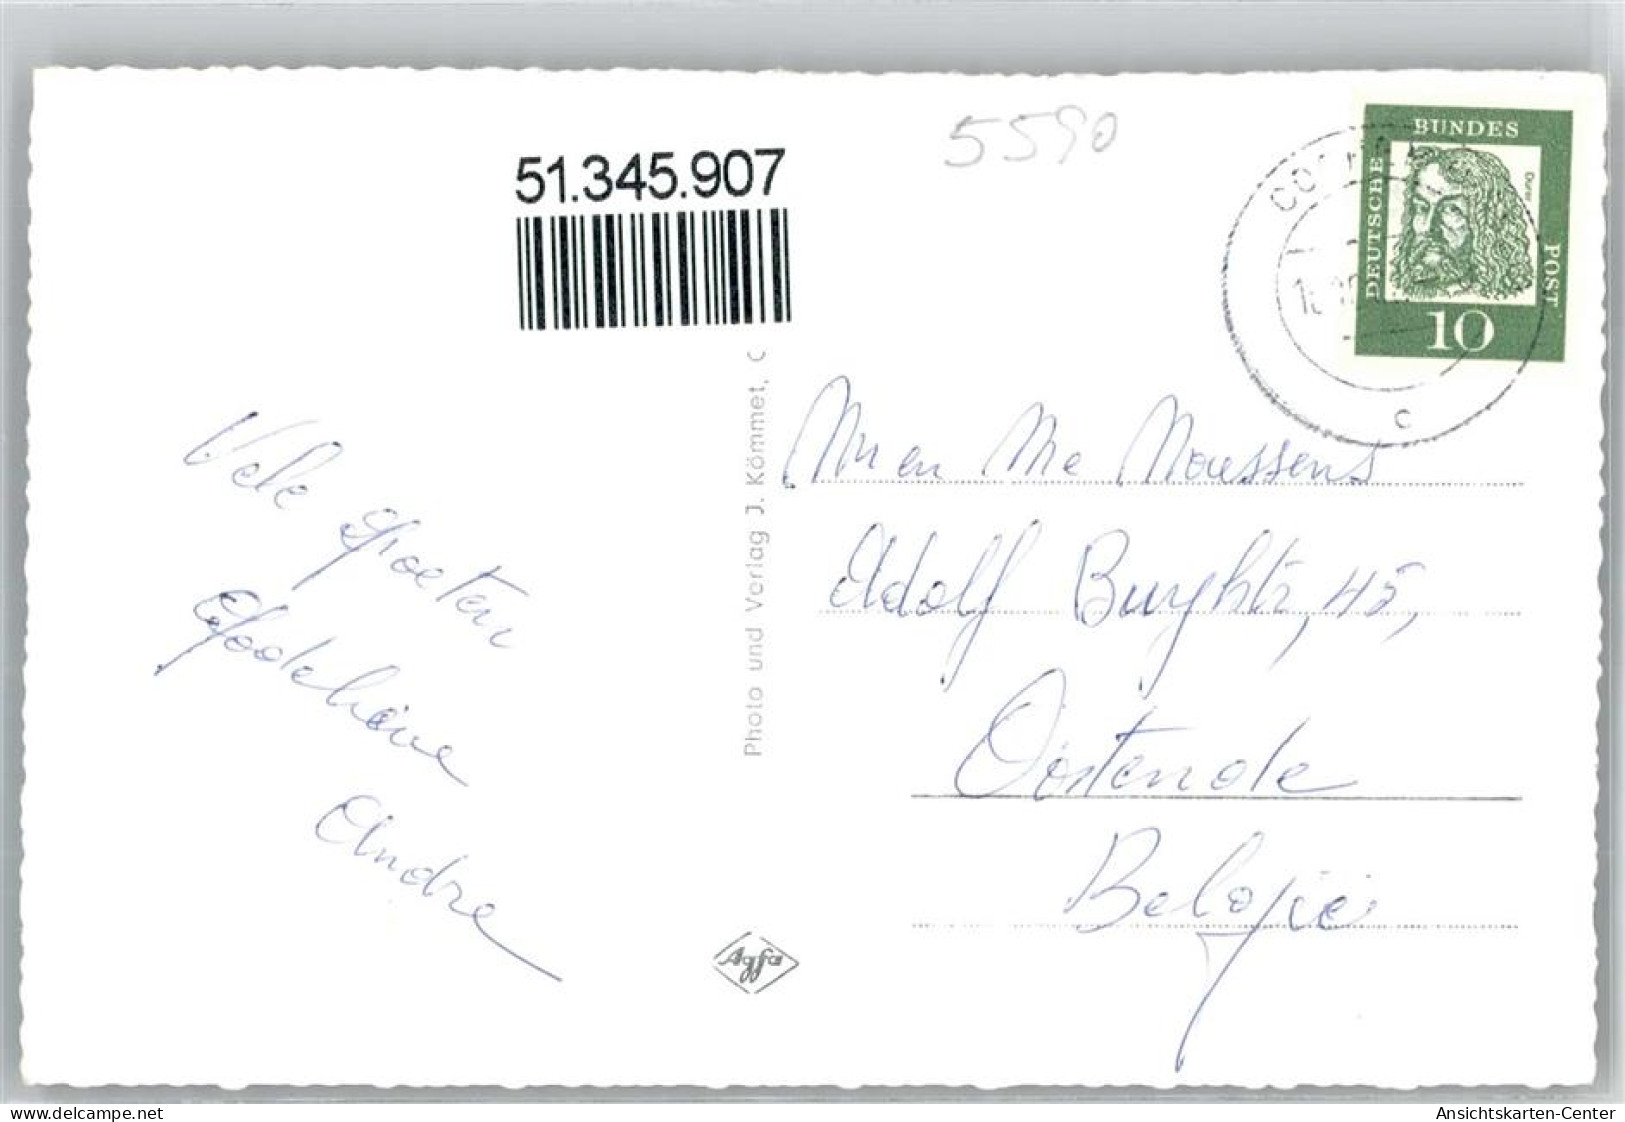 5590
51.345.907
BUNDES
DEUTSCHE
POST
Dürer
10
c
Photo und Verlag J. Kömmet, C
Vele Groeten
Godelieve
Andre
Mr en Me Moussens
Adolf Buylstr, 45,
Oostende
België
Agfa
delcampe.net
Ansichtskarten-Center